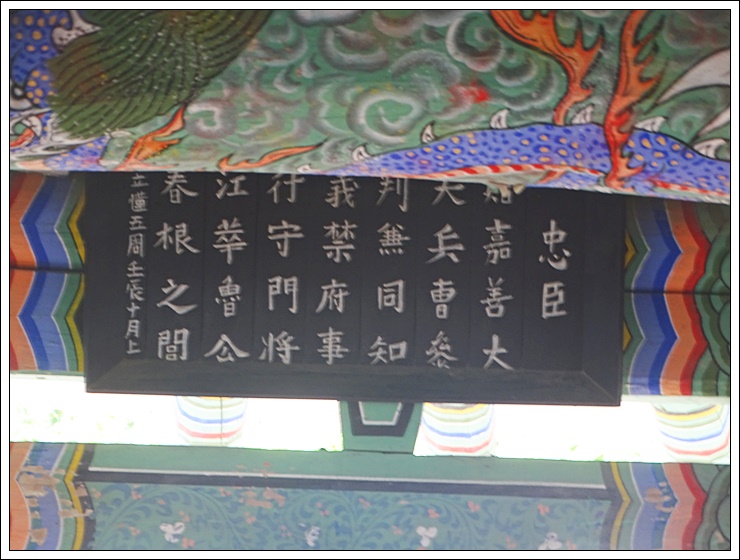 忠臣
贈嘉善大
夫兵曹叅
判兼同知
義禁府事
行守門將
江華魯公
春根之閭
立慬五周壬辰十月上